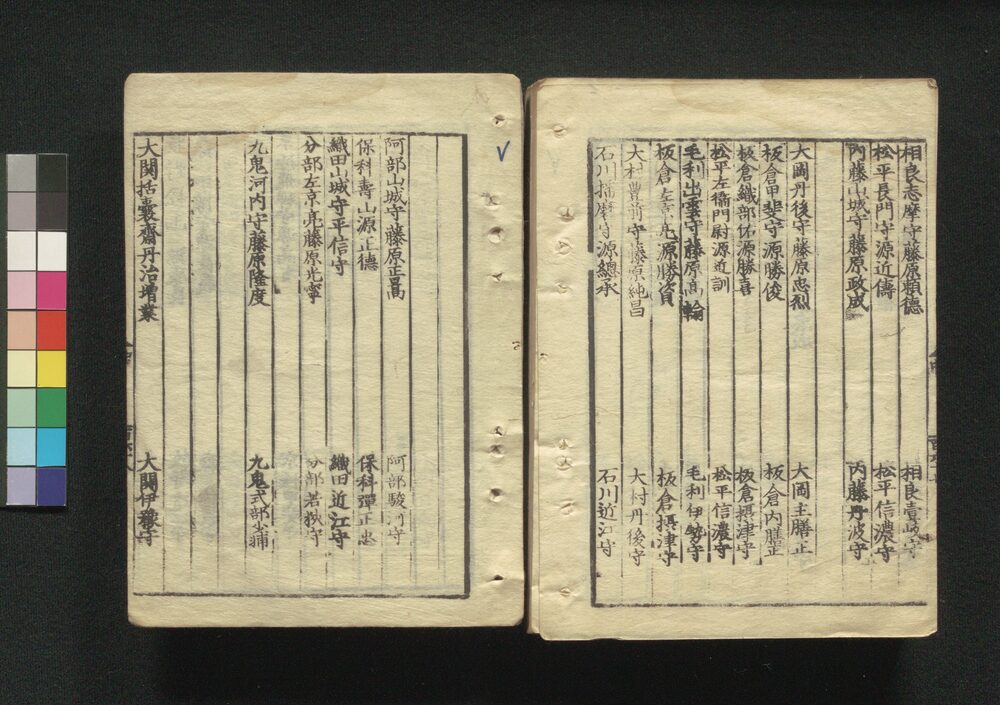 相良志摩守藤原頼德 相良壹岐守
松平長門守源近儔 松平信濃守
內藤山城守藤原政成 内藤丹波守
大岡丹後守藤原忠烈 大岡主膳正
板倉甲斐守源勝俊 板倉内膳正
板倉織部佑源勝喜 板倉摂津守
松平左衞門尉源近訓 松平信濃守
毛利出雲守藤原高翰 毛利伊勢守
板倉左京亮源勝資 板倉摂津守
大村豊前守藤原純昌 大村丹後守
石川播摩守源總承 石川近江守
阿部山城守藤原正暠 阿部駿河守
保科壽山源正德 保科彈正忠
織田山城守平信守 織田近江守
分部左京亮藤原光寧 分部若狹守
九鬼河内守藤原隆度 九鬼式部少輔
大関括囊齋丹治増業 大関伊豫守